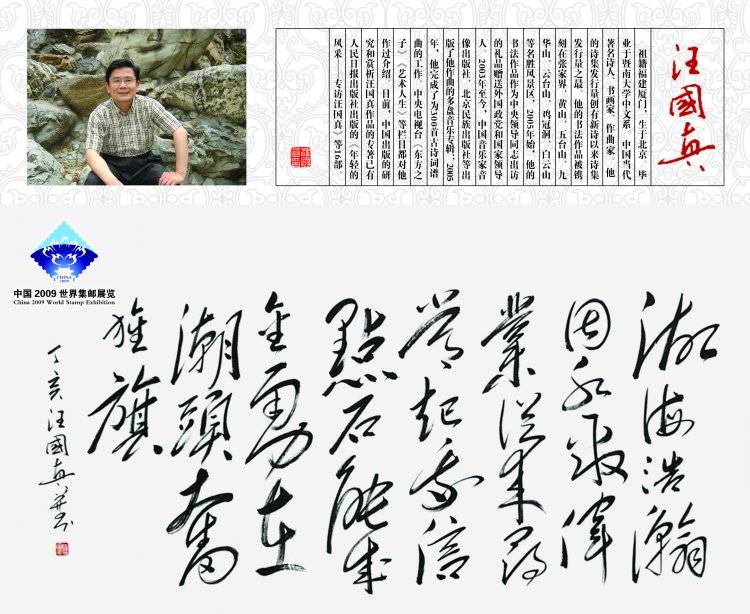 汪國真
祖籍福建厦门，生于北京，毕
业于暨南大学中文系，中国当代
著名诗人、书画家、作曲家。他
的诗集发行量创有新诗以来诗集
发行量之最，他的书法作品被镌
刻在张家界、黄山、五台山、九
华山、云台山、鸡冠洞、白云山
等名胜风景区，2005年始，他的
书法作品作为中央领导同志出访
的礼品赠送外国政党和国家领导
人。2003年至今，中国音乐家音
像出版社、北京民族出版社等出
版了他作曲的多盘音乐专辑；2005
年，他完成了为300首古诗词谱
曲的工作。中央电视台《东方之
子》《艺术人生》等栏目都对他
作过介绍。目前，中国出版的研
究和赏析汪国真作品的专著已有
人民日报出版社出版的《年轻的
风采——专访汪国真》等16部
CHINA
2009
中国2009世界集邮展览
China 2009 World Stamp Exhibition
湖海浩瀚
因水聚偉
業從來尋
常起我信
點石能成
金勇立
潮頭奮
旗
丁亥汪國真并书